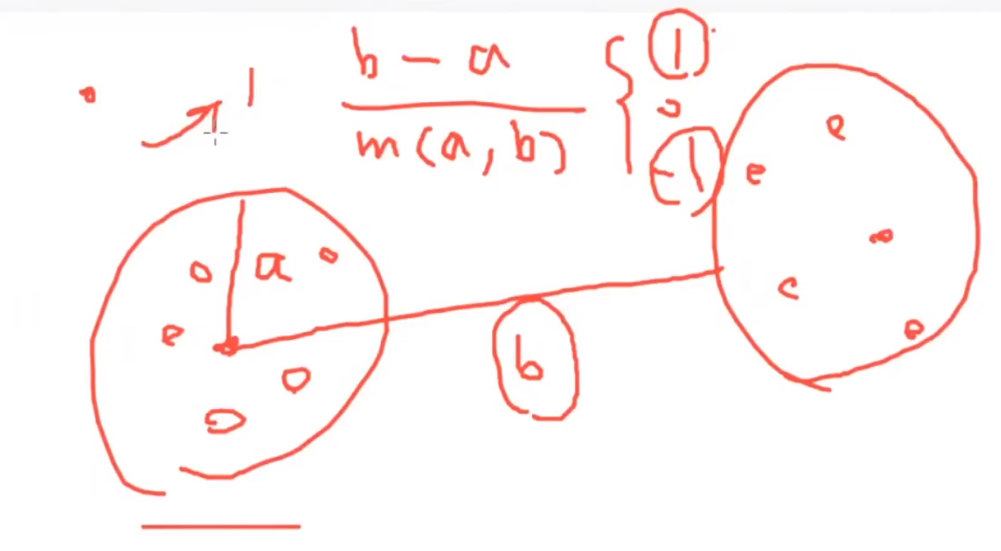 1
b - a
m(a, b)
1
0
-1
a
b